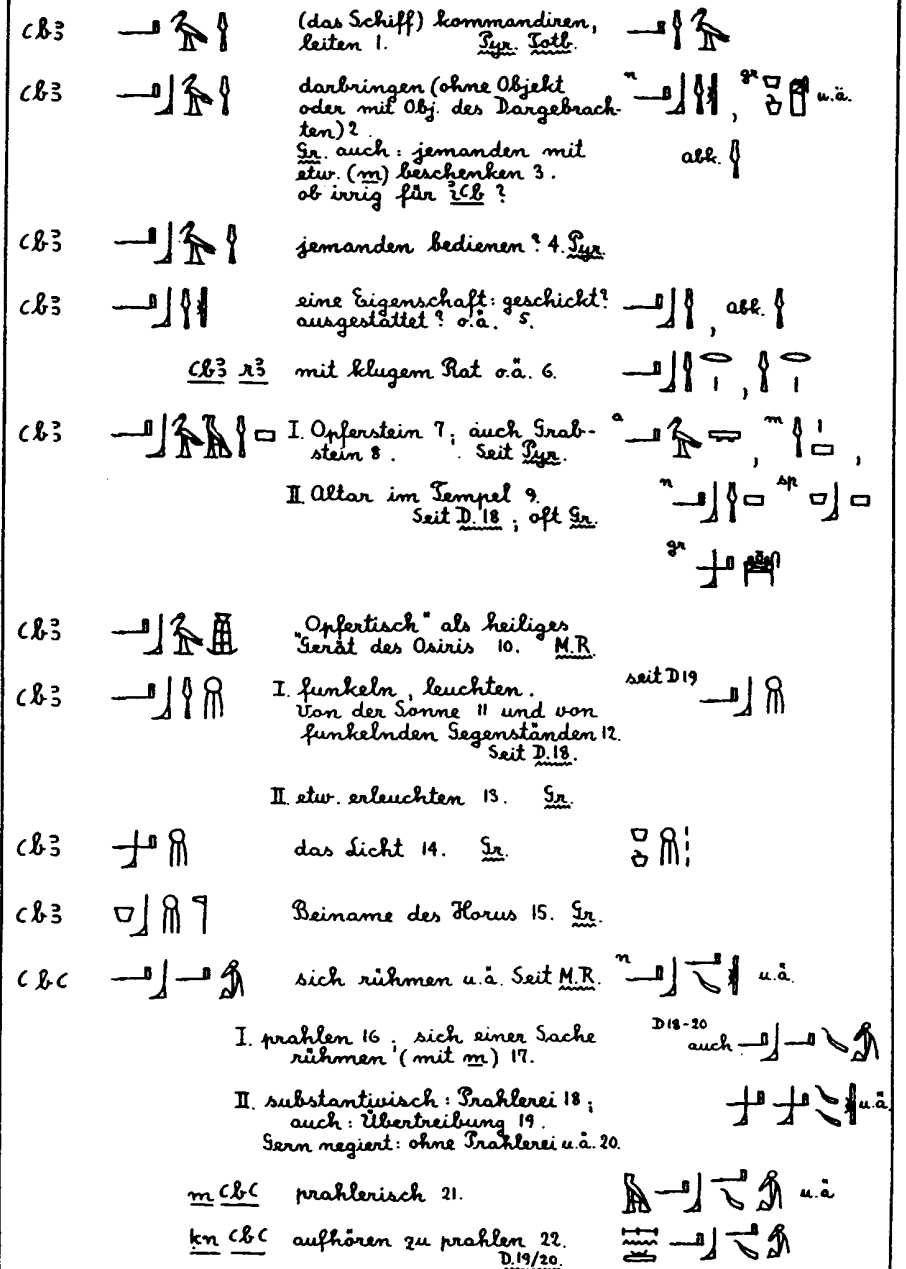 ꜥbꜣ (das Schiff) kommandiren,
leiten 1. Pyr. Totb.
ꜥbꜣ darbringen (ohne Objekt
oder mit Obj. des Dargebrach-
ten) 2. n , gr u.ä.
Gr. auch: jemanden mit
etw. (m) beschenken 3. abk.
ob irrig für iꜥb?
ꜥbꜣ jemanden bedienen? 4. Pyr.
ꜥbꜣ eine Eigenschaft: geschickt?
ausgestattet? o.ä. 5. , abk.
ꜥbꜣ rꜣ mit klugem Rat o.ä. 6. ,
ꜥbꜣ I. Opferstein 7; auch Grab- a , m ,
stein 8. Seit Pyr.
II. Altar im Tempel 9. n , sp
Seit D.18; oft Gr.
gr
ꜥbꜣ "Opfertisch" als heiliges
Gerät des Osiris 10. M.R.
ꜥbꜣ I. funkeln, leuchten. seit D19
Von der Sonne 11 und von
funkelnden Gegenständen 12.
Seit D.18.
II. etw. erleuchten 13. Gr.
ꜥbꜣ das Licht 14. Gr.
ꜥbꜣ Beiname des Horus 15. Gr.
ꜥbꜥ sich rühmen u.ä. Seit M.R. n u.ä.
I. prahlen 16; sich einer Sache D18-20
rühmen (mit m) 17. auch
II. substantivisch: Prahlerei 18; u.ä.
auch: Übertreibung 19.
Gern negiert: ohne Prahlerei u.ä. 20.
m ꜥbꜥ prahlerisch 21. u.ä
kn ꜥbꜥ aufhören zu prahlen 22.
D.19/20.